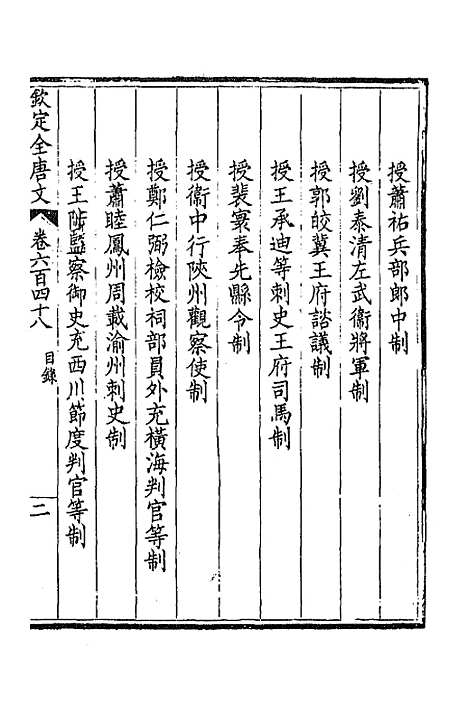 授蕭祐兵部郎中制
授劉泰清左武衞將軍制
授郭皎冀王府諮議制
授王承迪等刺史王府司馬制
授裴寰奉先縣令制
授衞中行陝州觀察使制
授鄭仁弼檢校祠部員外充橫海判官等制
授蕭睦鳳州周載渝州刺史制
授王陟監察御史充西川節度判官等制
欽定全唐文 卷六百四十八 目錄 二